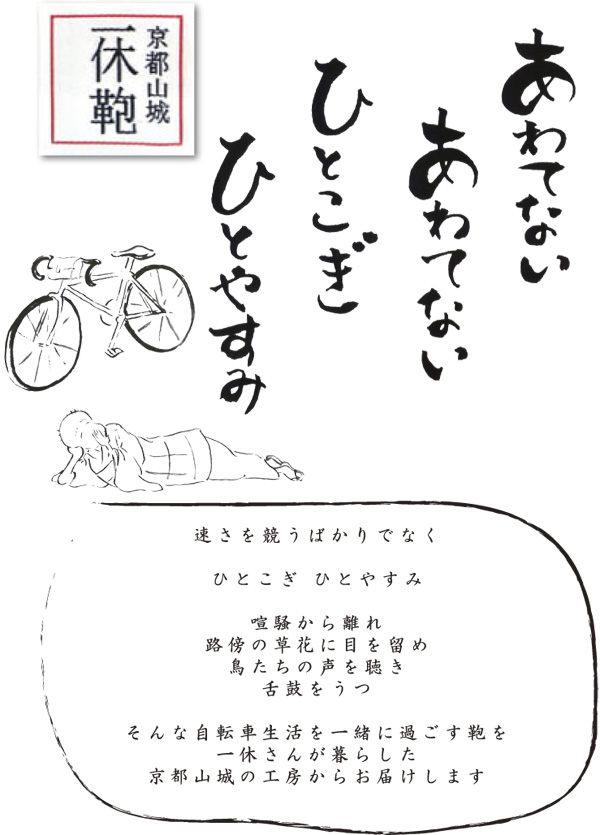 京都山城
一休鞄
あわてない
あわてない
ひとこぎ
ひとやすみ
速さを競うばかりでなく
ひとこぎ ひとやすみ
喧騒から離れ
路傍の草花に目を留め
鳥たちの声を聴き
舌鼓をうつ
そんな自転車生活を一緒に過ごす鞄を
一休さんが暮らした
京都山城の工房からお届けします